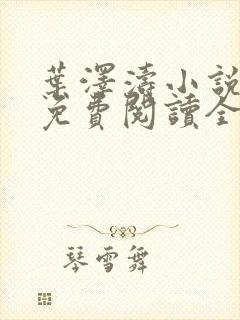 葉澤濤小說
免費閱讀全
琴雪舞